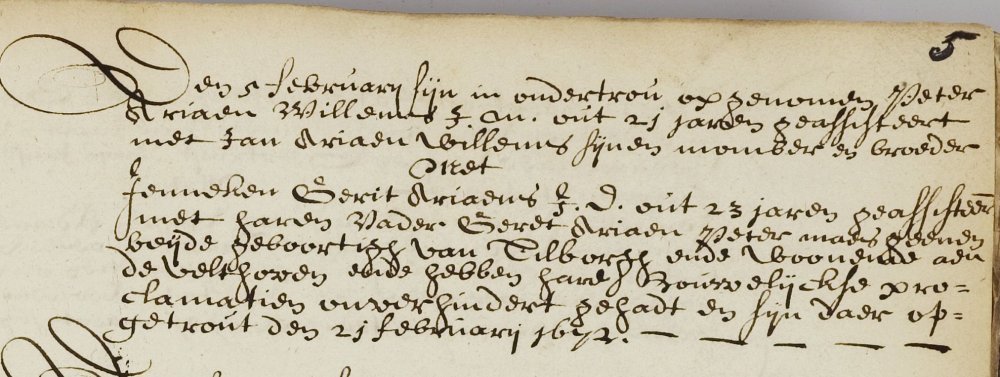 5
Den 5 februarij sijn in ondertrou op genomen Peter
Ariaen Willems J. M. out 21 jaren geassisteert
met Jan Ariaen Willems sijnen momber en broeder
Met
Jenneken Gerit Ariaens J. D. out 23 jaren geassisteert
met haren Vader Geret Ariaen Peter maes
beijde geboortigh van Tilborgh ende woonende aen
de velthoven ende hebben hare Houwelijckse pro=
clamatien onverhindert gehadt en sijn daer op=
getrout den 21 februarij 1672. — — — —